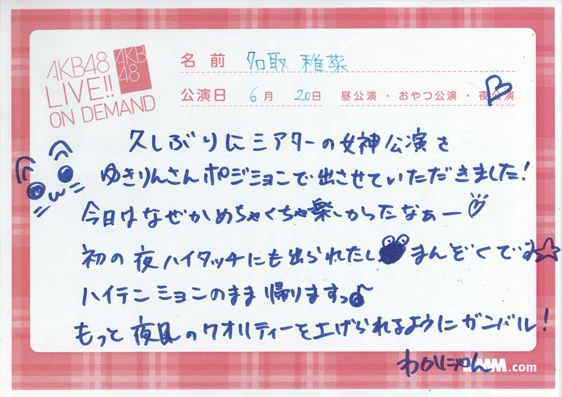 AKB48
LIVE!!
ON DEMAND
AKB
48
名前 名取 稚菜
公演日 6月 20日 昼公演・おやつ公演・夜公演
久しぶりにシアターの女神公演を
ゆきりんさんポジションで出させていただきました!
今日はなぜかめちゃくちゃ楽しかったなぁー♡
初の夜ハイタッチにも出られたし まんぞくです☆
ハイテンションのまま帰りますっ♪
もっと夜風のクオリティーを上げられるようにガンバル!
わかにゃん
DMM.com